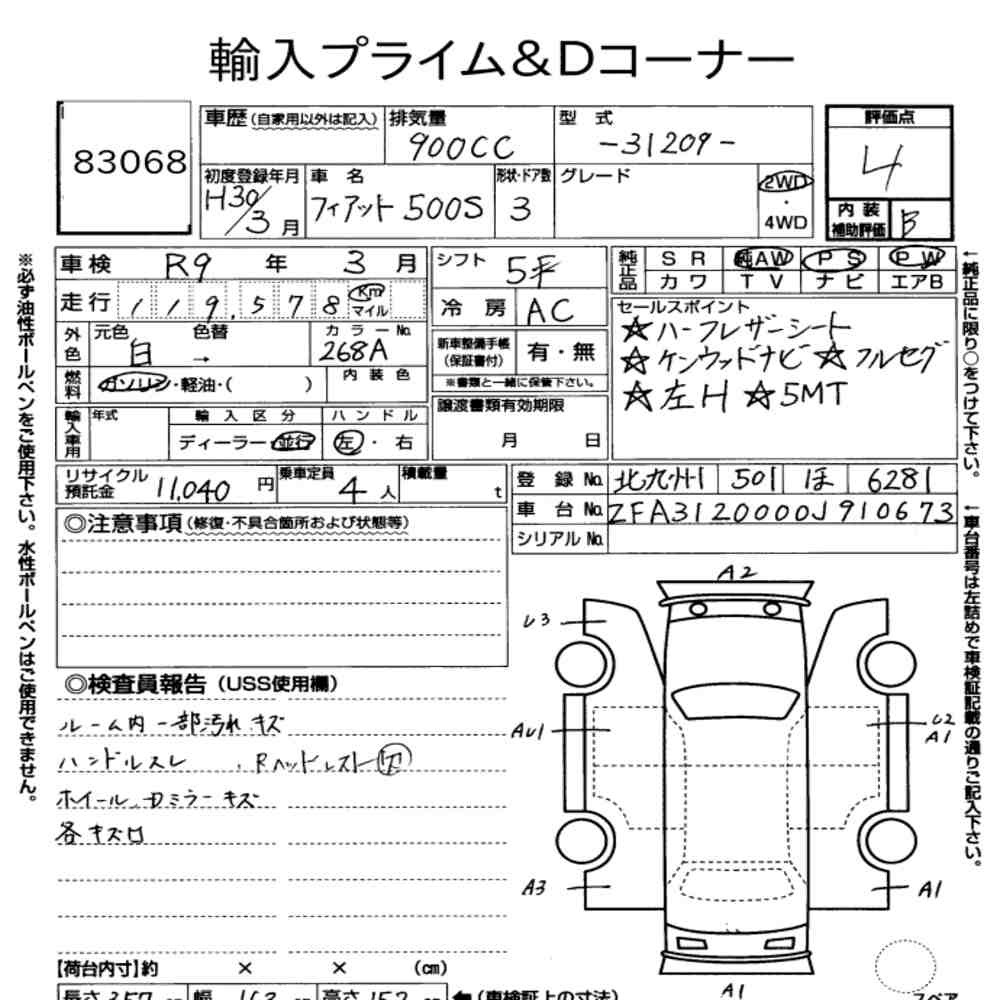 輸入プライム&Dコーナー
83068
車歴(自家用以外は記入)
排気量
900CC
型 式
-31209-
評価点
4
内 装
補助評価
B
初度登録年月
H30/3月
車 名
フィアット 500S
形状・ドア数
3
グレード
2WD
・
4WD
※必ず油性ボールペンをご使用下さい。水性ボールペンはご使用できません。
車 検 R9 年 3 月
走 行 119,578 Km マイル
外色
元色
白
色替
→
カラーNo.
268A
燃料
ガソリン・軽油・( )
内 装 色
輸入車用
年式
輸 入 区 分
ディーラー・並行
ハ ン ド ル
左・右
シフト
5F
冷 房
AC
新車整備手帳
(保証書付)
有・無
※書類と一緒に保管下さい。
譲渡書類有効期限
月 日
純正品
S R
純AW
P S
P W
カ ワ
T V
ナ ビ
エアB
セールスポイント
☆ハーフレザーシート
☆ケンウッドナビ ☆フルセグ
☆左H ☆5MT
←純正品に限り○をつけて下さい。
リサイクル
預託金
11,040 円
乗車定員
4 人
積載量
t
登 録 No.
北九州 501 ほ 6281
車 台 No.
ZFA3120000J910673
シリアル No.
←車台番号は左詰めで車検証記載の通りご記入下さい。
◎注意事項(修復・不具合箇所および状態等)
◎検査員報告(USS使用欄)
ルーム内一部汚れ キズ
ハンドルスレ 、Rヘッドレスト欠
ホイール、Dミラーキズ
各キズ凹
A2
U3
AU1
U2
A1
A3
A1
A1
【荷台内寸】約 × × (cm)
長さ 357
幅 163
高さ 152
←(車検証上の寸法)
スペア